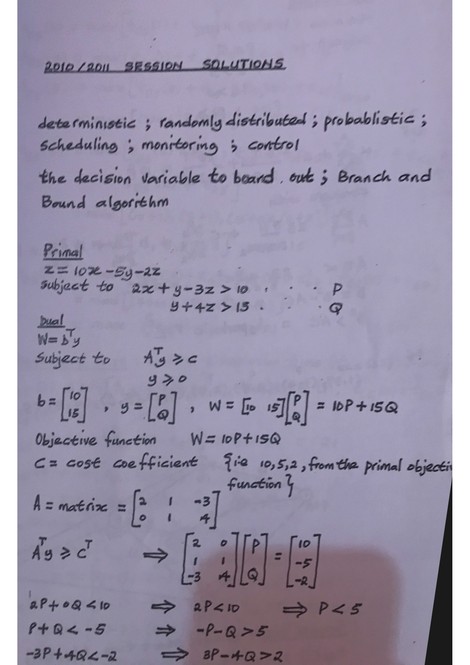 2010/2011 SESSION SOLUTIONS
deterministic ; randomly distributed ; probablistic ;
scheduling ; monitoring ; control
the decision variable to board out ; Branch and
Bound algorithm
Primal
Z = 10x - 5y - 2z
Subject to 2x + y - 3z > 10 . . . P
y + 4z > 15 . . . Q
Dual
W = bᵀy
Subject to Aᵀy ≥ c
y ≥ 0
b = [10 15] , y = [P Q] , W = [10 15][P Q] = 10P + 15Q
Objective function W = 10P + 15Q
C = cost coefficient {i.e 10, 5, 2, from the primal objecti
function}
A = matrix = [2 1 -3 0 1 4]
Aᵀy ≥ Cᵀ ⇒ [2 0 1 1 -3 4][P Q] = [10 -5 -2]
2P + 0Q < 10 ⇒ 2P < 10 ⇒ P < 5
P + Q < -5 ⇒ -P - Q > 5
-3P + 4Q < -2 ⇒ 3P - 4Q > 2